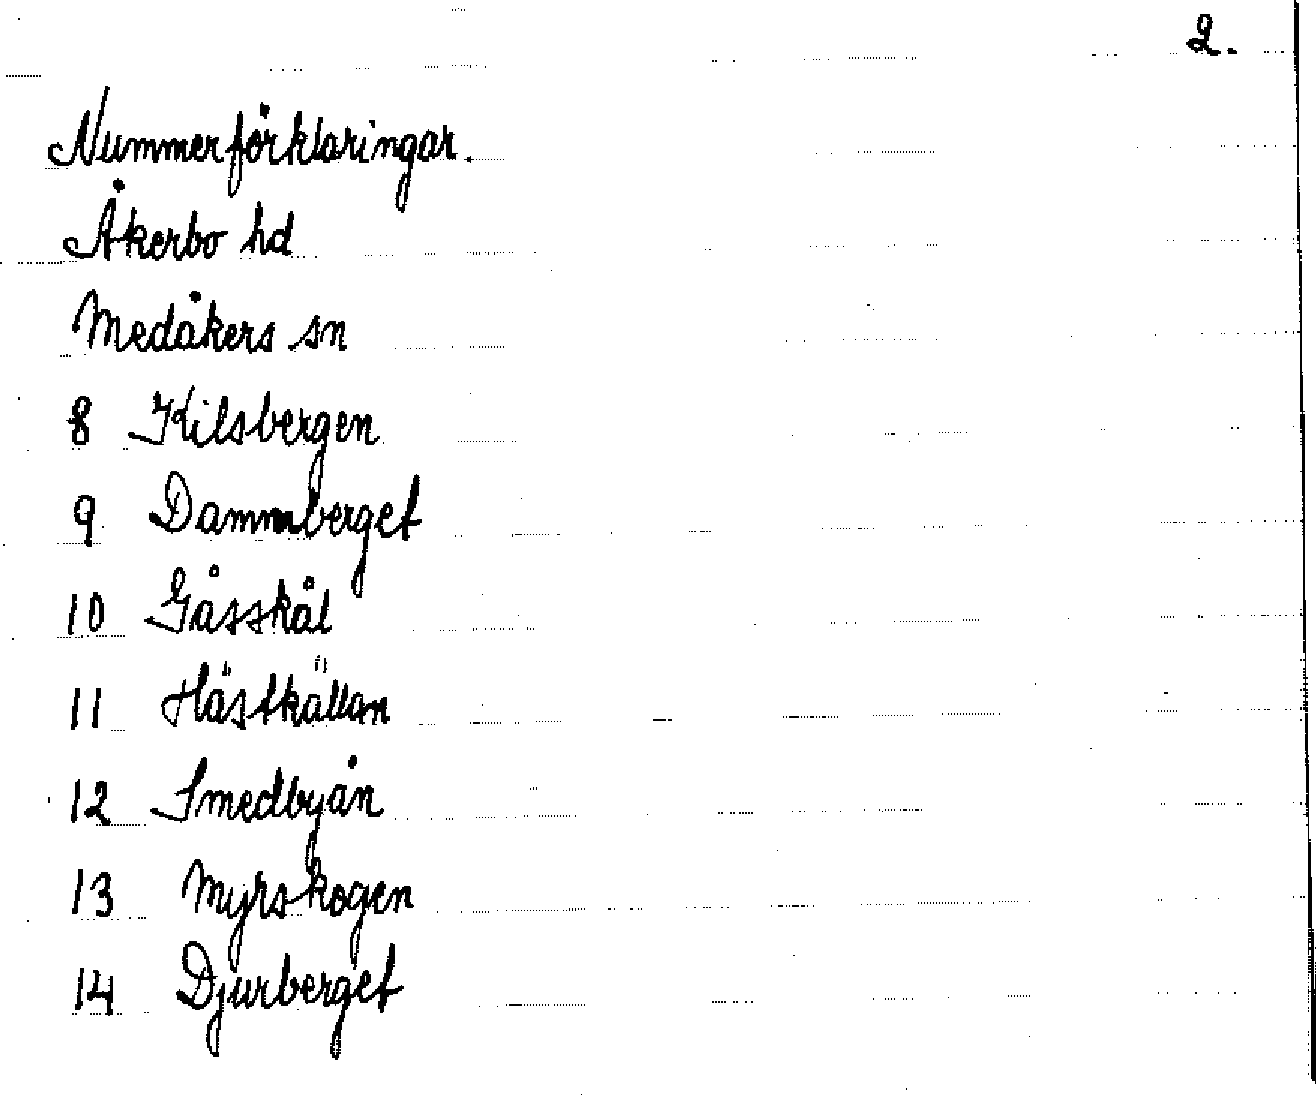 2.
Nummerförklaringar.
Åkerbo hd
Medåkers sn
8 Kilsbergen
9 Dammberget
10 Gåsskål
11 Hästkällan
12 Smedbyån
13 Myrskogen
14 Djurberget